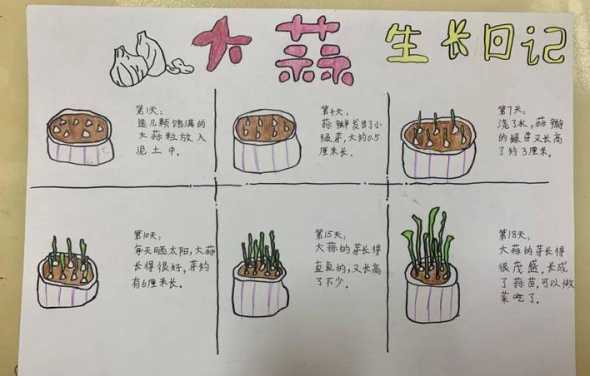 大蒜生长日记
第1天:
选几颗饱满的
大蒜粒放入
泥土中.
第4天,
蒜瓣发出了小
绿芽,大约0.5
厘米长.
第7天,
浇了水,蒜瓣
的绿芽又长高
了约3厘米.
第10天,
每天晒太阳,大蒜
长得很好,芽约
有6厘米长.
第15天,
大蒜的芽长得
直直的,又长高
了不少.
第18天,
大蒜的芽长得
很茂盛.长成
了蒜苗,可以做
菜吃了.